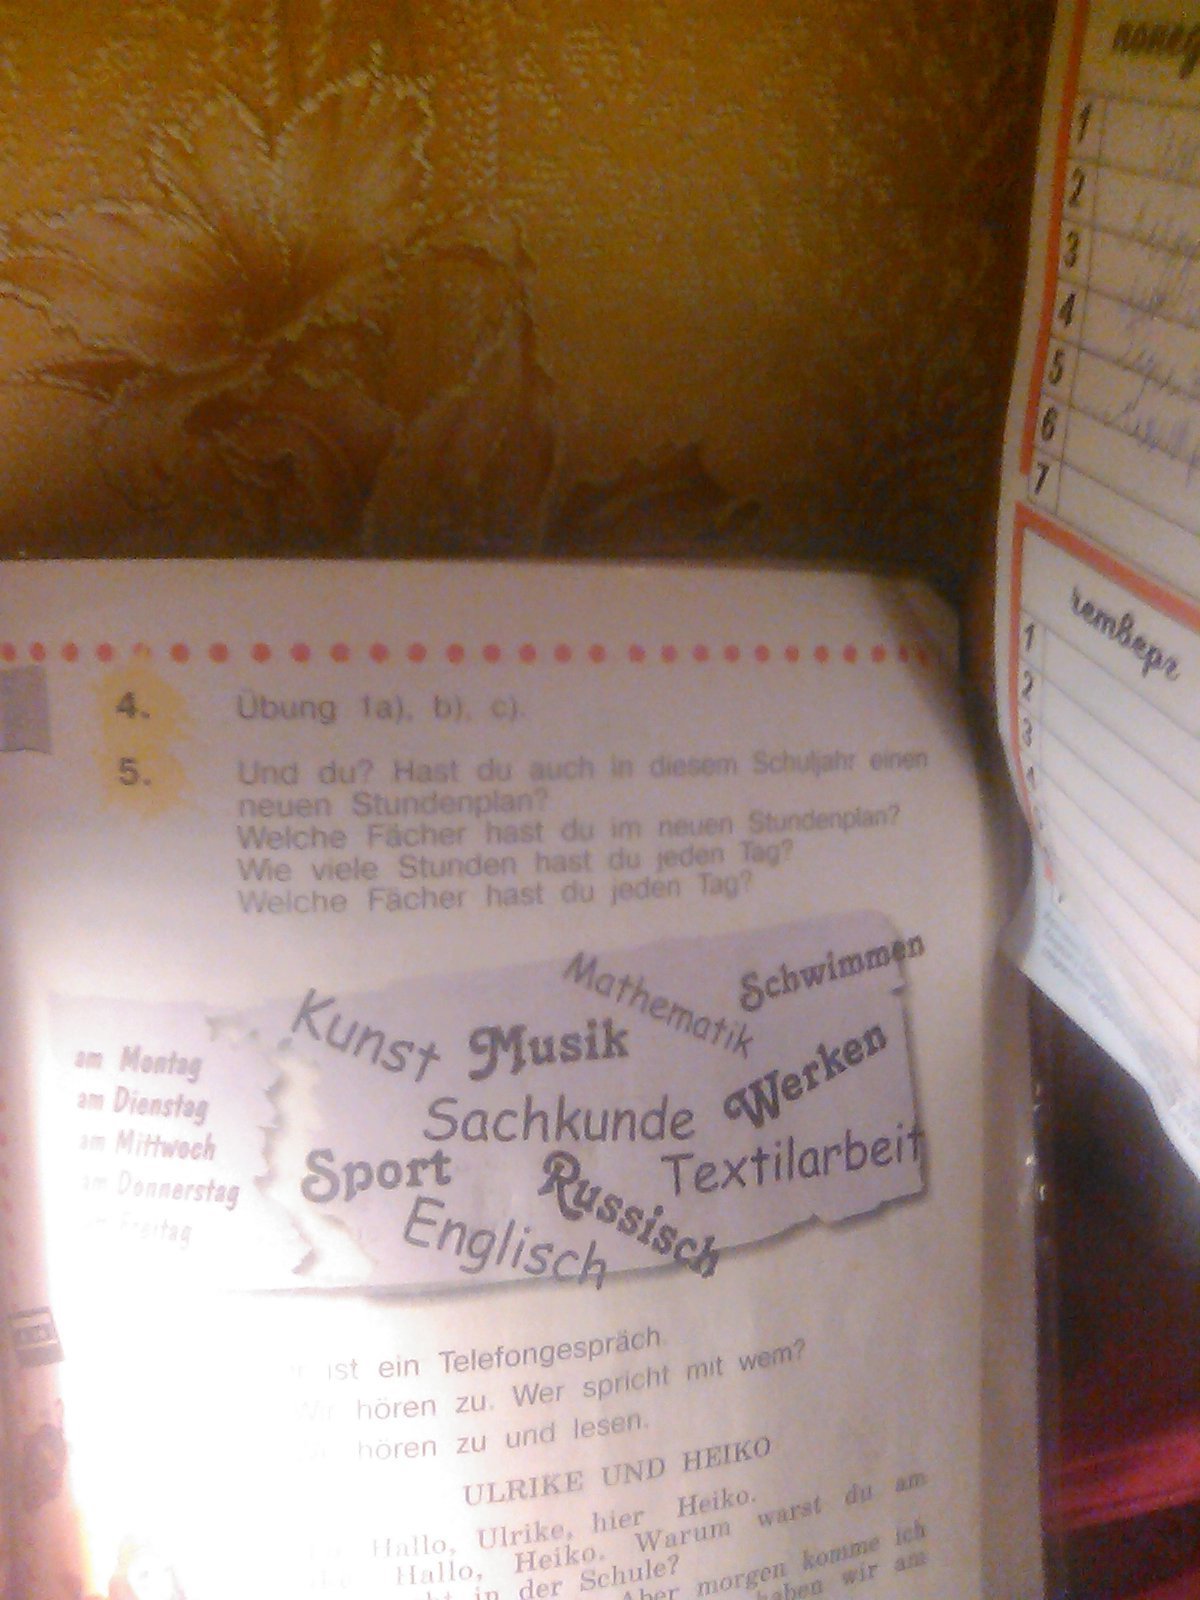 4. Übung 1a), b), c).
5. Und du? Hast du auch in diesem Schuljahr einen
neuen Stundenplan?
Welche Fächer hast du im neuen Stundenplan?
Wie viele Stunden hast du jeden Tag?
Welche Fächer hast du jeden Tag?
am Montag
am Dienstag
am Mittwoch
am Donnerstag
am Freitag
Kunst
Musik
Mathematik
Schwimmen
Sachkunde
Werken
Sport
Russisch
Textilarbeit
Englisch
ist ein Telefongespräch.
hören zu. Wer spricht mit wem?
hören zu und lesen.
ULRIKE UND HEIKO
Hallo, Ulrike, hier Heiko.
Hallo, Heiko. Warum warst du am
in der Schule?
Aber morgen komme ich
haben wir am
1
2
3
4
5
6
7
четверг
1
2
3